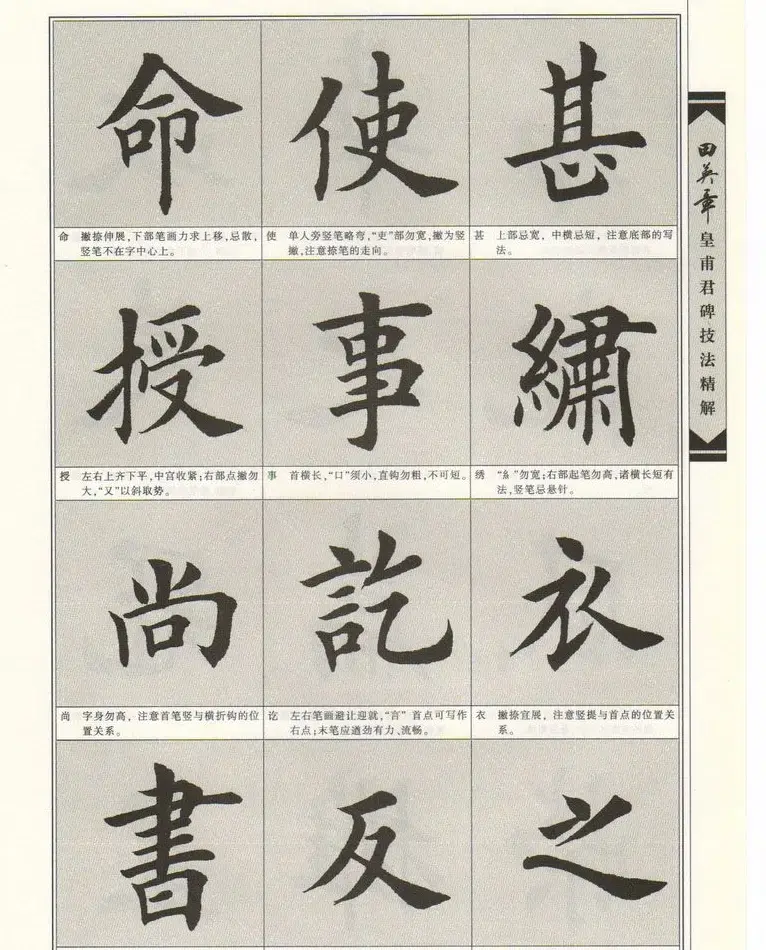 命 使 甚
命 撇捺伸展,下部笔画力求上移,忌散,
竖笔不在字中心上。
使 单人旁竖笔略弯,“吏”部勿宽,撇为竖
撇,注意捺笔的走向。
甚 上部忌宽,中横忌短,注意底部的写
法。
授 事 繡
授 左右上齐下平,中宫收紧;右部点撇勿
大,“又”以斜取势。
事 首横长,“口”须小,直钩勿粗,不可短。
绣 “糹”勿宽;右部起笔勿高,诸横长短有
法,竖笔忌悬针。
尚 訖 衣
尚 字身勿高,注意首笔竖与横折钩的位
置关系。
讫 左右笔画避让迎就,“言”首点可写作
右点;末笔应遒劲有力、流畅。
衣 撇捺宜展,注意竖提与首点的位置关
系。
書 反 之
田英章 皇甫君碑技法精解